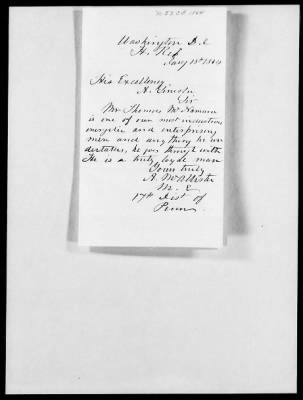 Washington D.C
H. Rep
Jany 18th 1864
His Excellency
A. Lincoln
Sir
Mr Thomas McNamara
is one of our most industrious
energetic and enterprising
men and any thing he un
dertakes, he goes through with
He is a truly loyal man
Yours truly
A. McAllister
M. C
17th Dist of
Penna